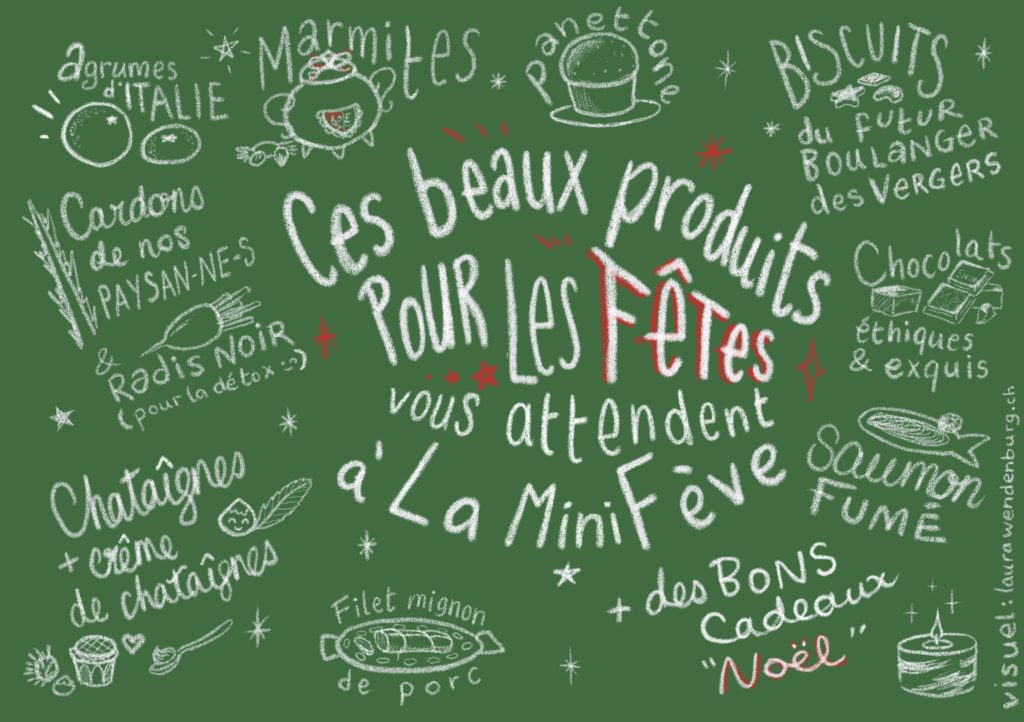 agrumes
d'ITALIE
Marmites
Panettone
BISCUITS
du futur
BOULANGER
des VERGERS
Cardons
de nos
PAYSAN-NE-S
&
Radis NOIR
(pour la détox :-))
Ces beaux produits
POUR LES FÊTES
vous attendent
à La Mini Fève
Chocolats
éthiques
& exquis
SAUMON
FUMÉ
Chataîgnes
+ crême
de chataîgnes
Filet mignon
de porc
+ des BONS
Cadeaux
"Noël"
visuel : laurawendenburg.ch